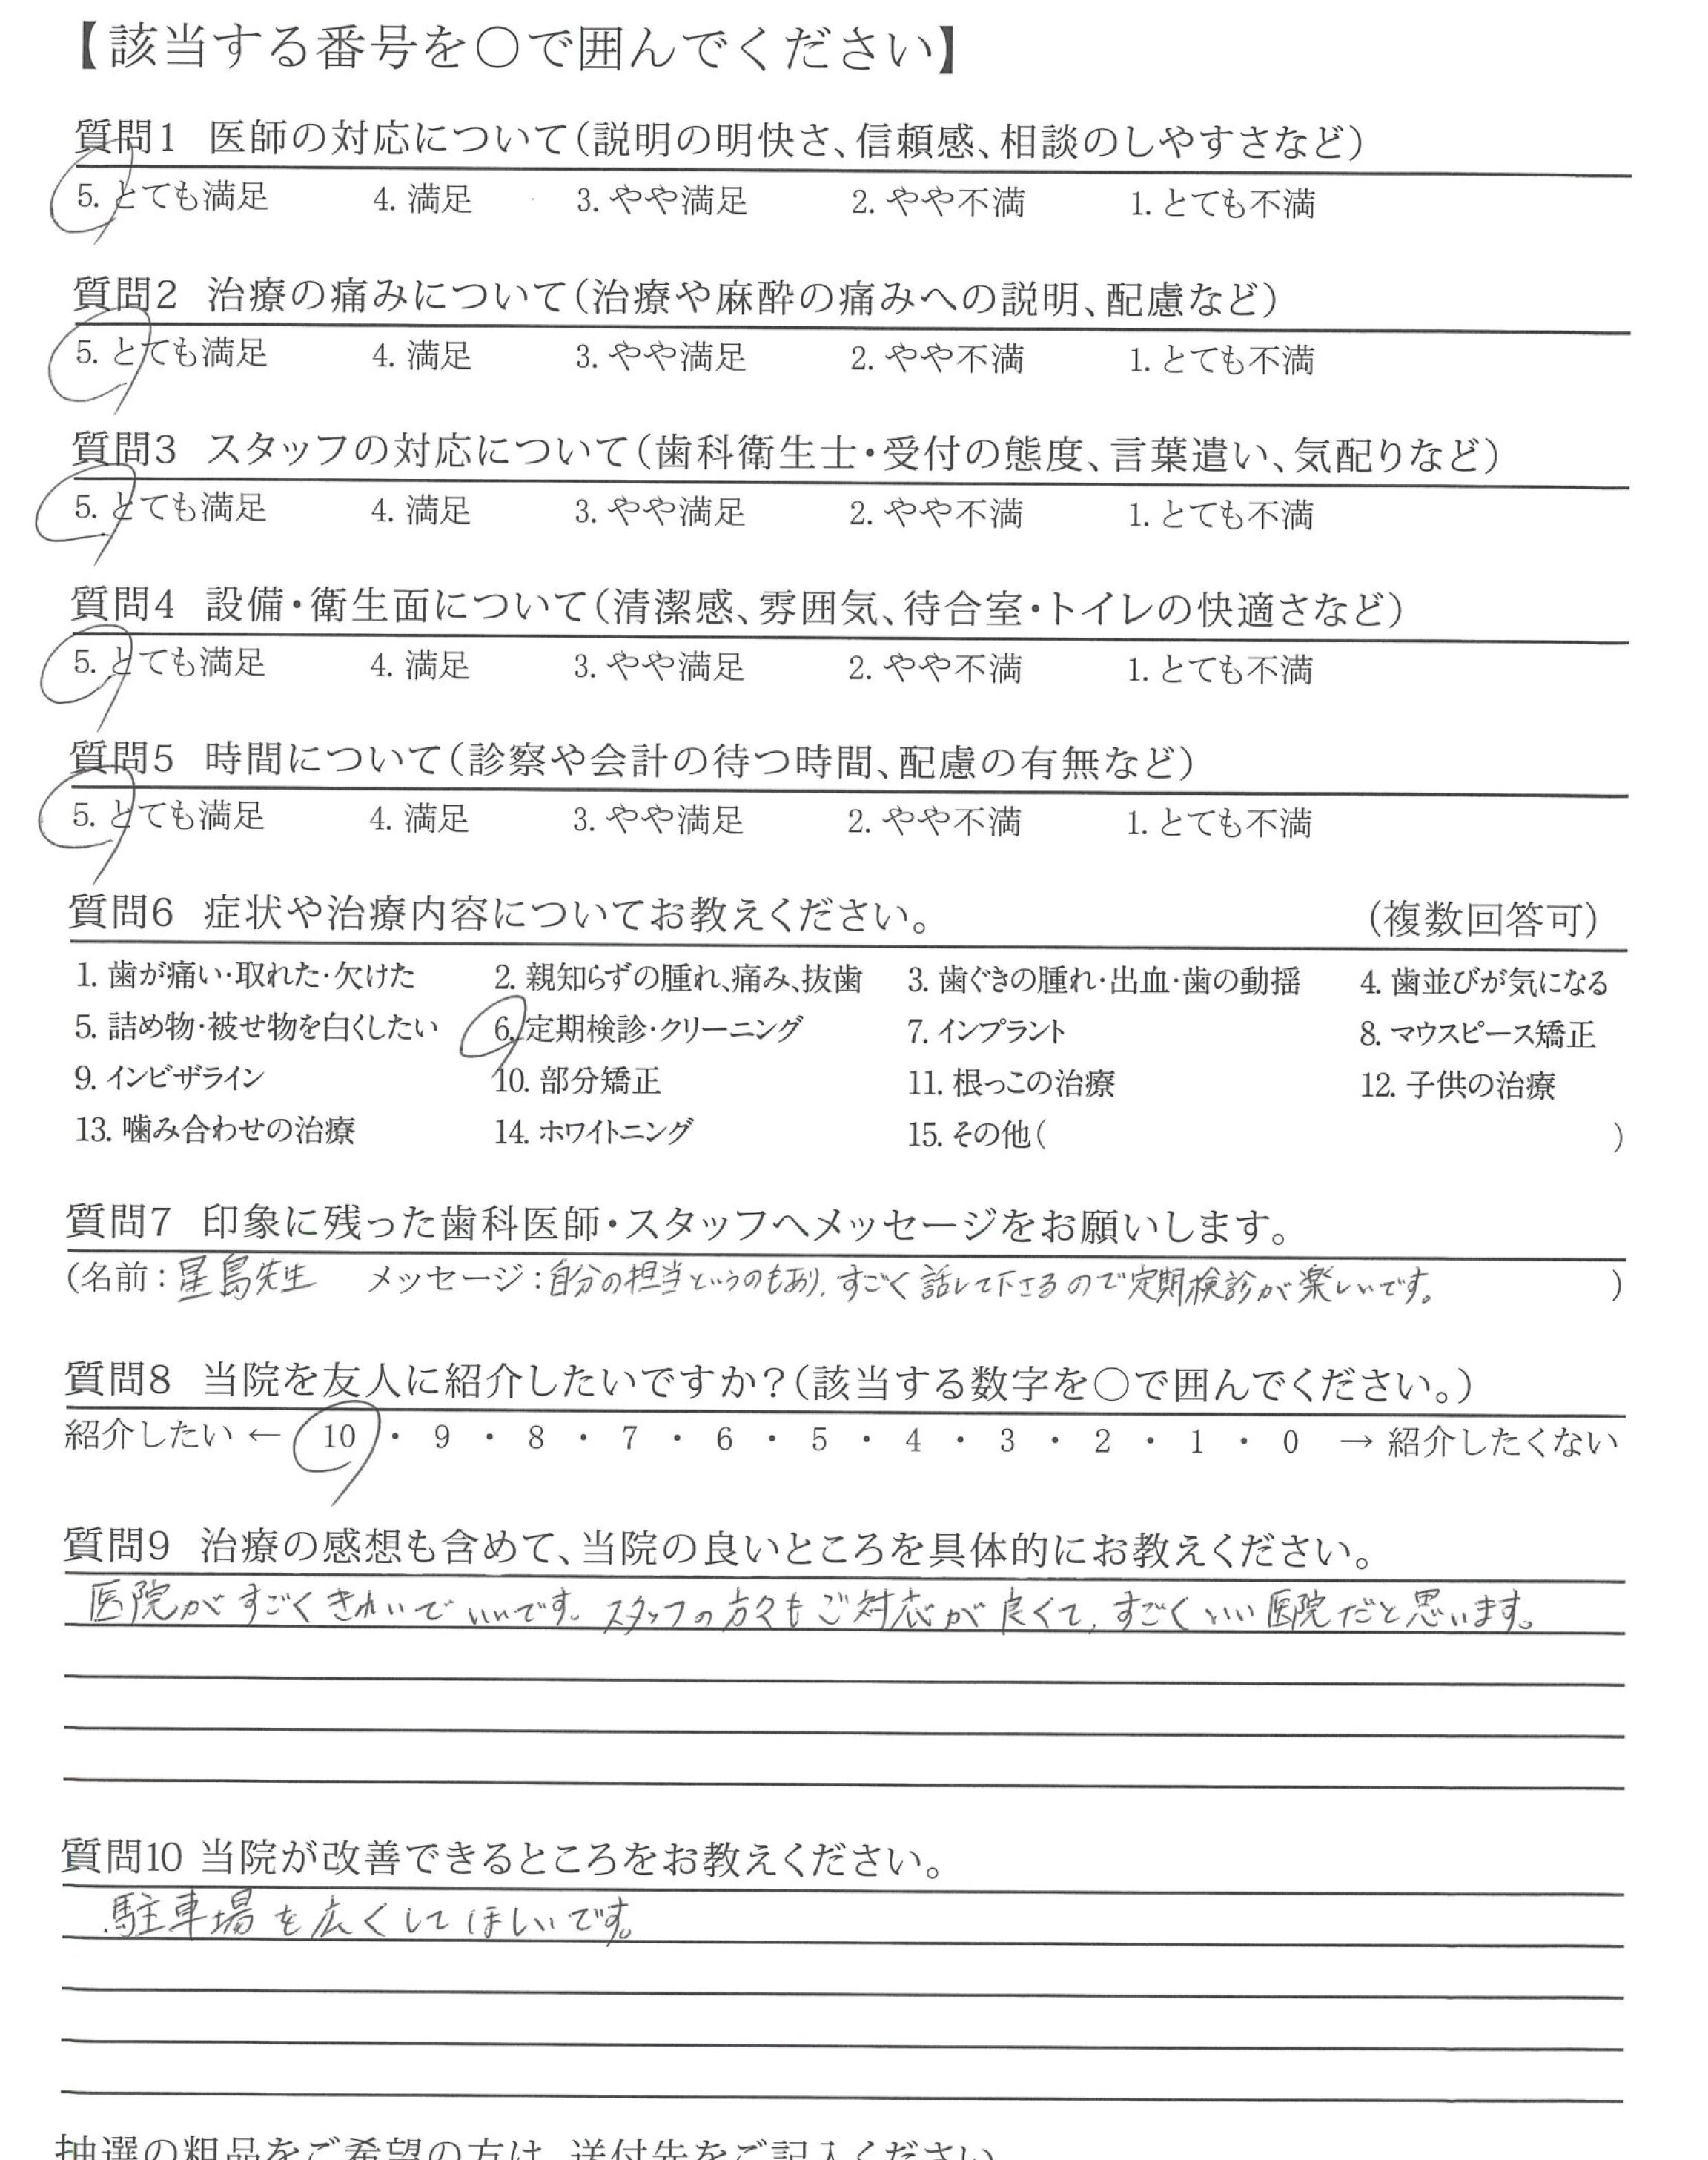 【該当する番号を〇で囲んでください】
質問1 医師の対応について(説明の明快さ、信頼感、相談のしやすさなど)
5. とても満足 4. 満足 3. やや満足 2. やや不満 1. とても不満
質問2 治療の痛みについて(治療や麻酔の痛みへの説明、配慮など)
5. とても満足 4. 満足 3. やや満足 2. やや不満 1. とても不満
質問3 スタッフの対応について(歯科衛生士・受付の態度、言葉遣い、気配りなど)
5. とても満足 4. 満足 3. やや満足 2. やや不満 1. とても不満
質問4 設備・衛生面について(清潔感、雰囲気、待合室・トイレの快適さなど)
5. とても満足 4. 満足 3. やや満足 2. やや不満 1. とても不満
質問5 時間について(診察や会計の待つ時間、配慮の有無など)
5. とても満足 4. 満足 3. やや満足 2. やや不満 1. とても不満
質問6 症状や治療内容についてお教えください。 (複数回答可)
1. 歯が痛い・取れた・欠けた 2. 親知らずの腫れ、痛み、抜歯 3. 歯ぐきの腫れ・出血・歯の動揺 4. 歯並びが気になる
5. 詰め物・被せ物を白くしたい 6. 定期検診・クリーニング 7. インプラント 8. マウスピース矯正
9. インビザライン 10. 部分矯正 11. 根っこの治療 12. 子供の治療
13. 噛み合わせの治療 14. ホワイトニング 15. その他( )
質問7 印象に残った歯科医師・スタッフへメッセージをお願いします。
(名前：星島先生 メッセージ：自分の担当というのもあり、すごく話して下さるので定期検診が楽しいです。 )
質問8 当院を友人に紹介したいですか？(該当する数字を〇で囲んでください。)
紹介したい ← 10 ・ 9 ・ 8 ・ 7 ・ 6 ・ 5 ・ 4 ・ 3 ・ 2 ・ 1 ・ 0 → 紹介したくない
質問9 治療の感想も含めて、当院の良いところを具体的にお教えください。
医院がすごくきれいでいいです。スタッフの方々もご対応が良くて、すごくいい医院だと思います。
質問10 当院が改善できるところをお教えください。
駐車場を広くしてほしいです。
抽選の粗品をご希望の方は、送付先をご記入ください